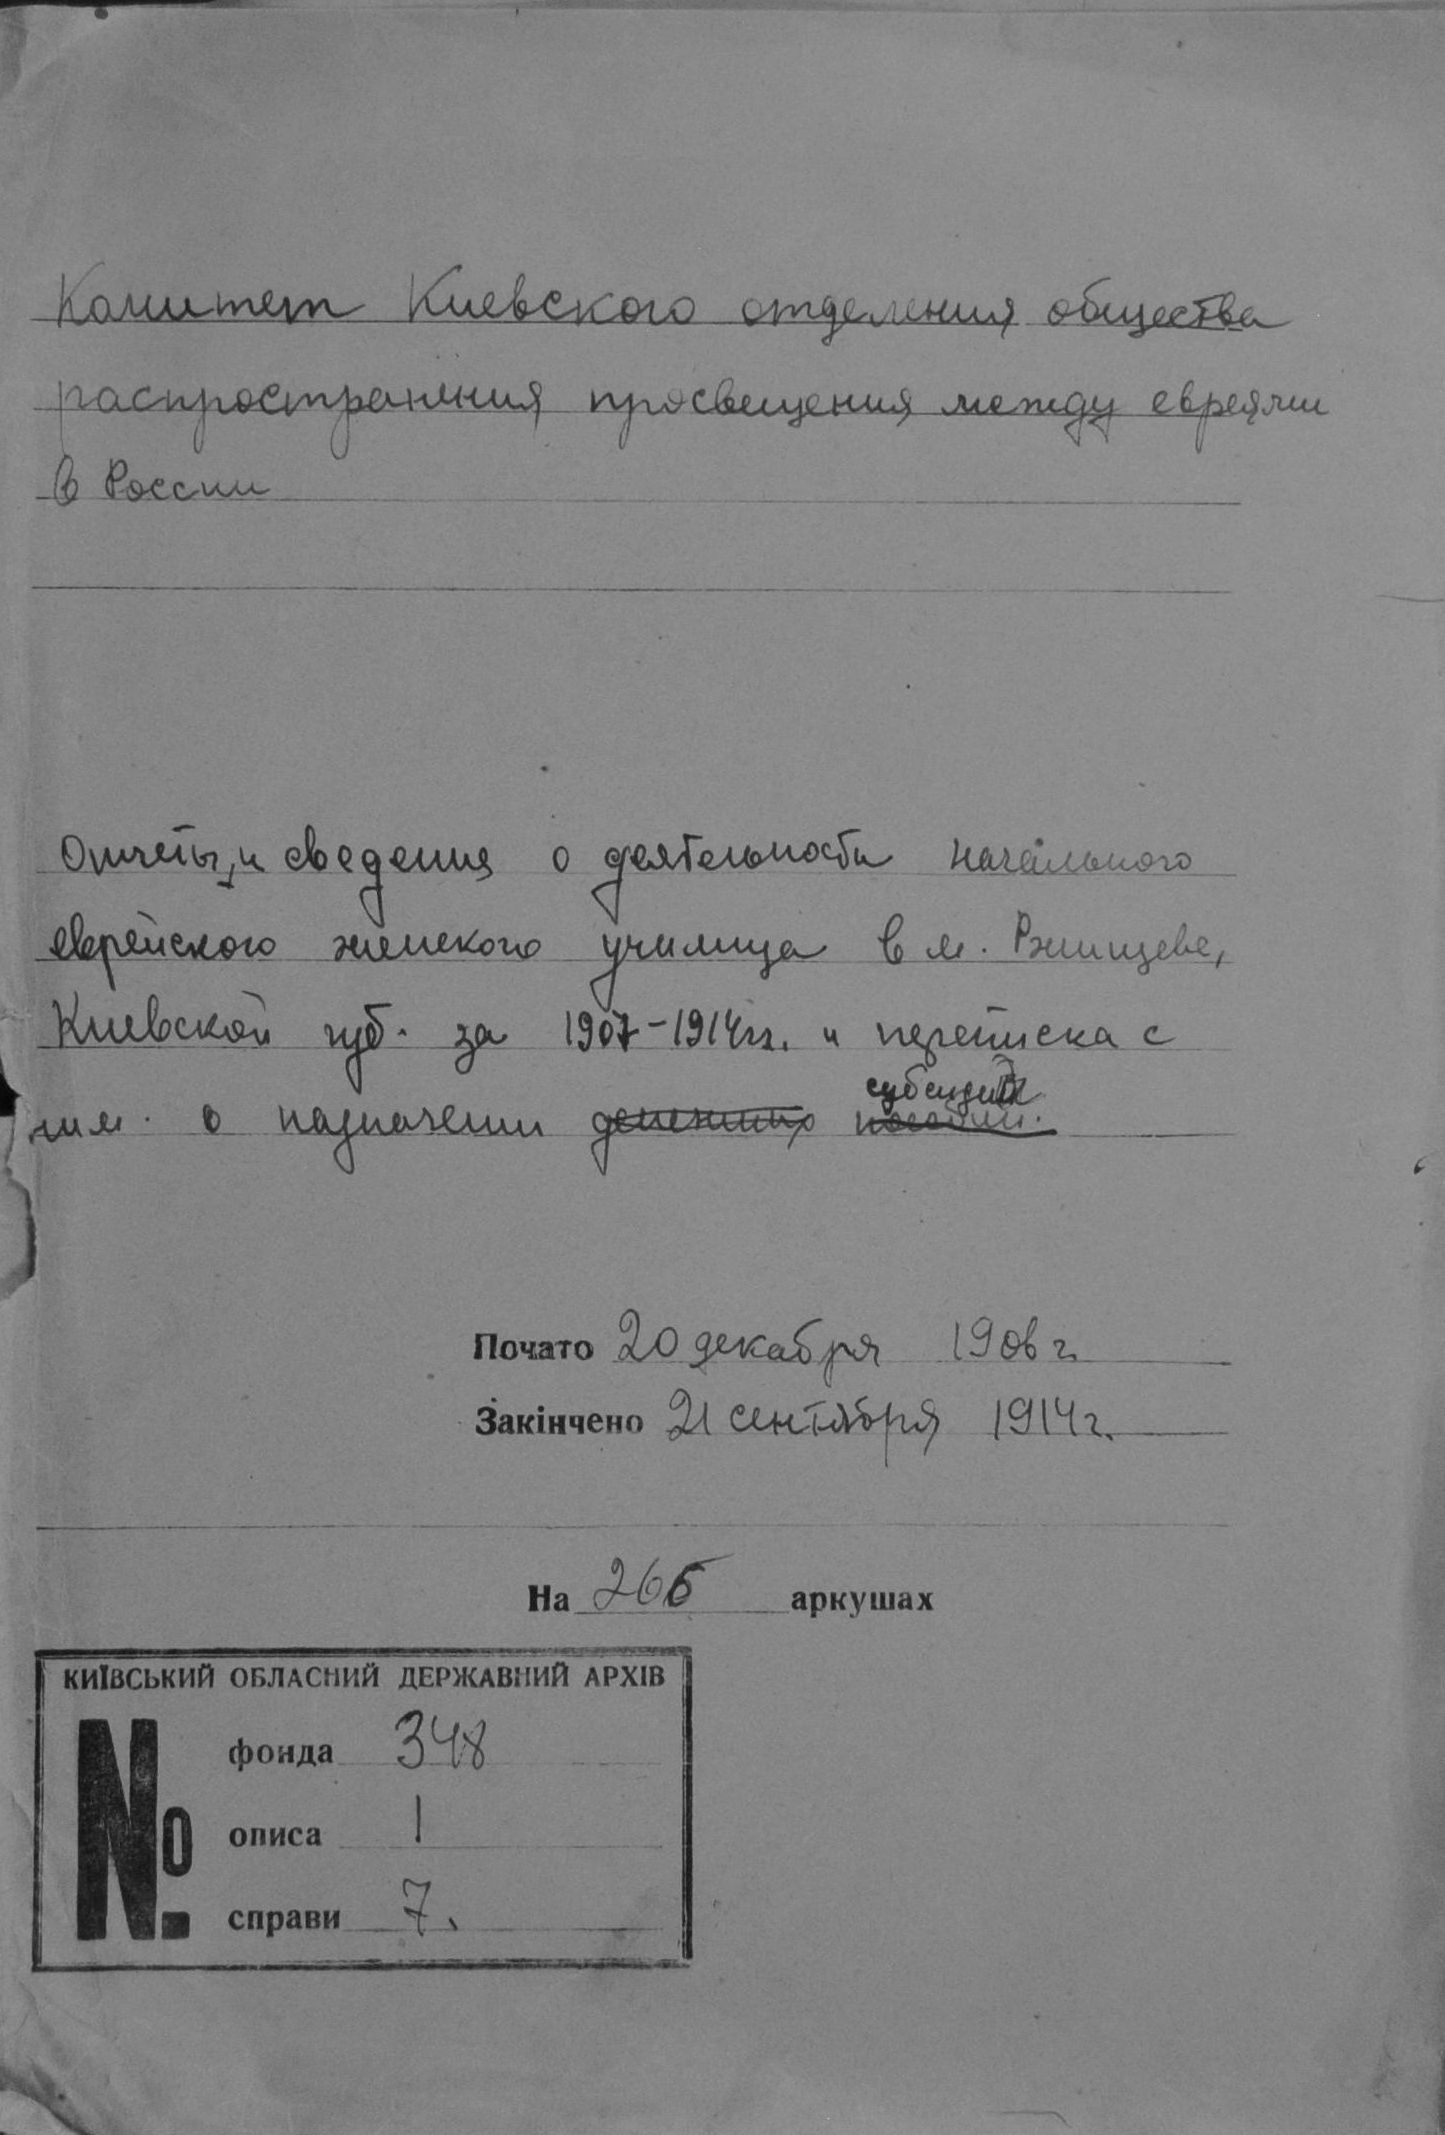 Комитет Киевского отделения общества
распространения просвещения между евреями
в России
Отчеты и сведения о деятельности начального
еврейского женского училища в м. Ржищеве,
Киевской губ. за 1907-1914 гг. и переписка с
ним о назначении денежных пособий. субсидий
Почато 20 декабря 1906 г.
Закінчено 21 сентября 1914 г.
На 266 аркушах
КИЇВСЬКИЙ ОБЛАСНИЙ ДЕРЖАВНИЙ АРХІВ
№
фонда 348
описа 1
справи 7.